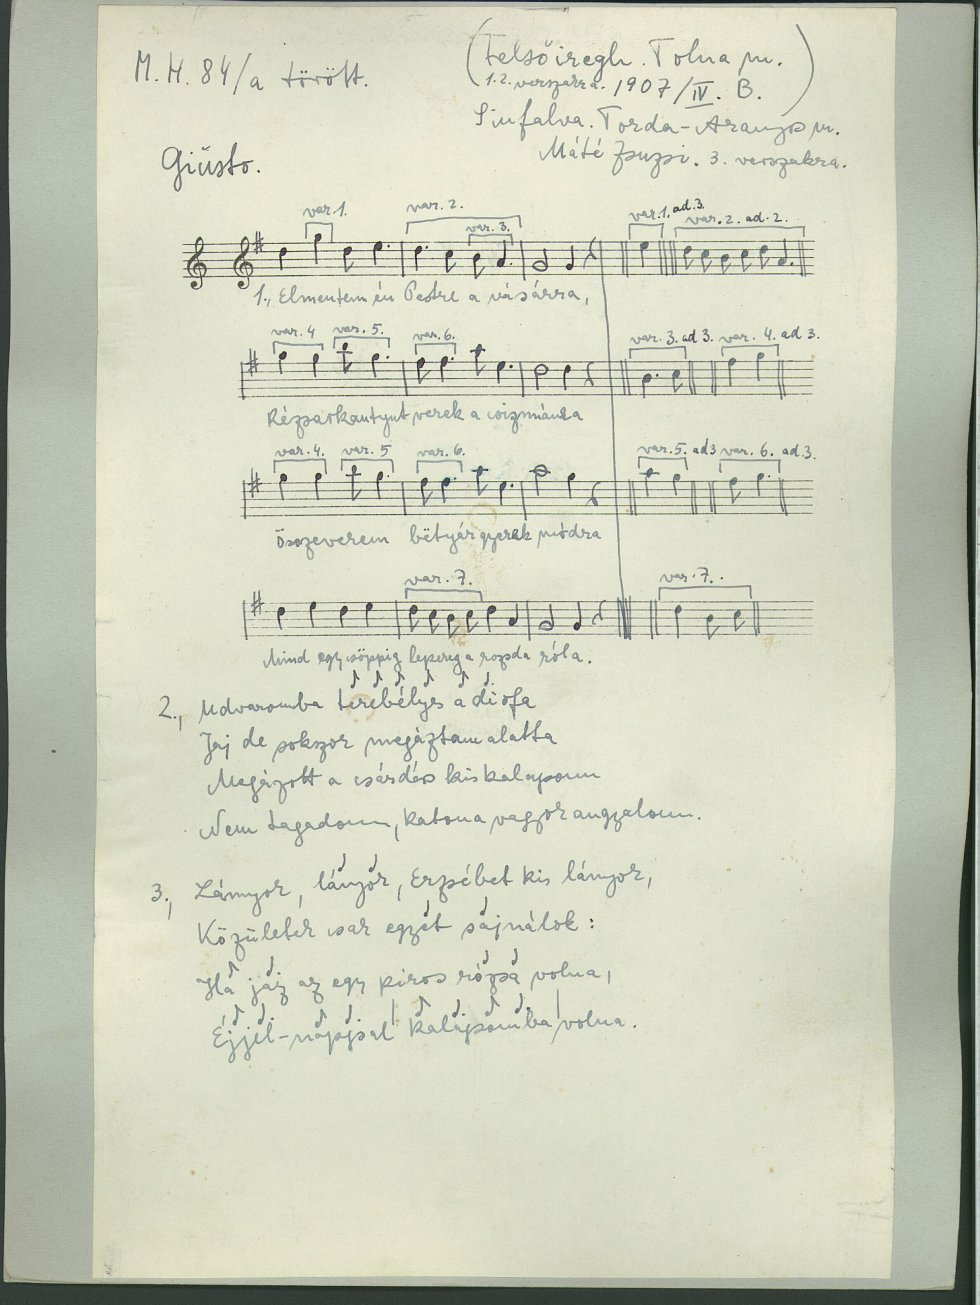 M. H. 84/a törött.
(Felsőiregh. Tolna m.
1.2. verszakra. 1907/IV. B.)
Sinfalva. Torda-Aranyos m.
Máté Zsuzsi. 3. verszakra.
Giusto.
var. 1. var. 2. var. 3. var. 1. ad. 3. var. 2. ad. 2.
1., Elmentem én Pestre a vásárra,
var. 4 var. 5. var. 6. var. 3. ad 3. var. 4. ad 3.
Rézsarkantyut verek a csizmámra
var. 4. var. 5 var. 6. var. 5. ad 3 var. 6. ad. 3.
Összeverem bëtyárgyerek módra
var. 7. var. 7.
Mind egy csöppig lepereg a rozsda róla.
2., Udvaromba terebélyes a diófa
Jaj de sokszor megáztam alatta
Megázott a csárdás kis kalapom
Nem tagadom, katona vagyok angyalom.
3., Lányok, lányok, Erzsébet kis lányok,
Közületek csak egyet sajnálok:
Ha jaz az egy piros rózsa volna,
Éjjel-nappal kalapomba volna.